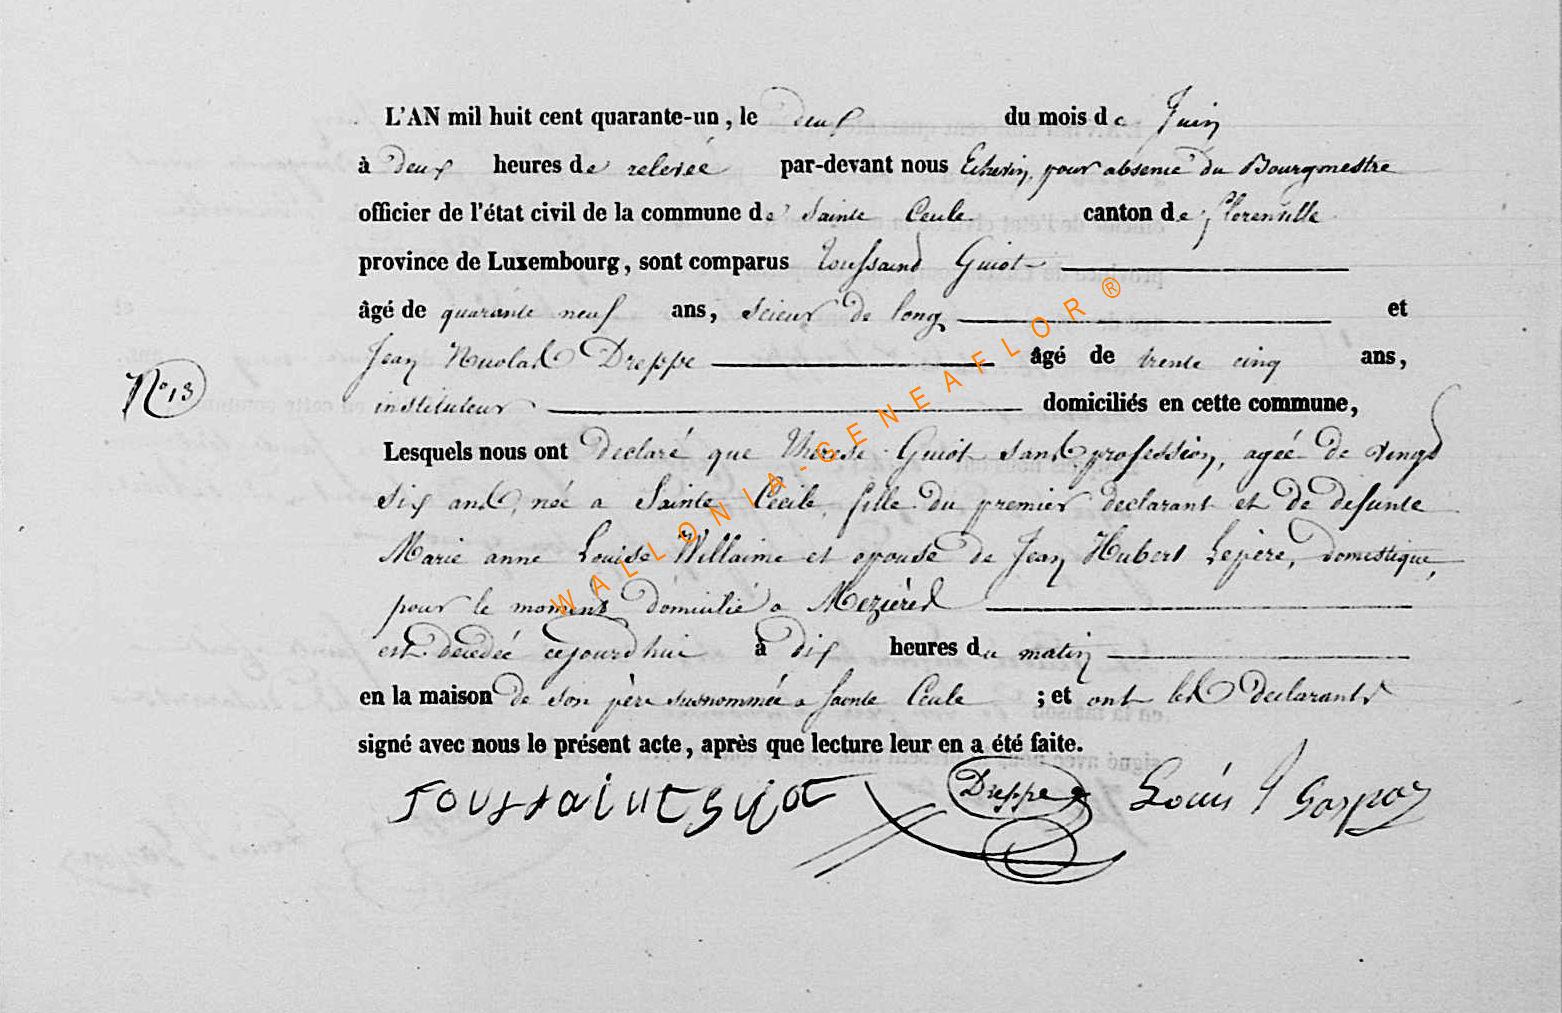 L'AN mil huit cent quarante-un, le deux du mois de Juin
à deux heures de relevée par-devant nous Echevin, pour absence du Bourgmestre
officier de l'état civil de la commune de Sainte Cecile canton de florenville
province de Luxembourg, sont comparus Toussaind Guiot
âgé de quarante neuf ans, scieur de long et
Jean Nicolas Dreppe âgé de trente cinq ans,
No 13
instituteur domiciliés en cette commune,
Lesquels nous ont declaré que Therese Guiot sans profession, agée de vingt
six ans, née a Sainte Cecile, fille du premier declarant et de defunte
Marie anne Louise Willaime et epouse de Jean Hubert Lepère, domestique,
pour le moment domicilié a Mezières
est decedée cejourd'hui à dix heures du matin
en la maison de son père susnommée a sainte Cecile ; et ont les declarants
signé avec nous le présent acte, après que lecture leur en a été faite.
Toussaint guiot Dreppe Louis J Gaspar
WALLONIA-GENEAFLOR ®